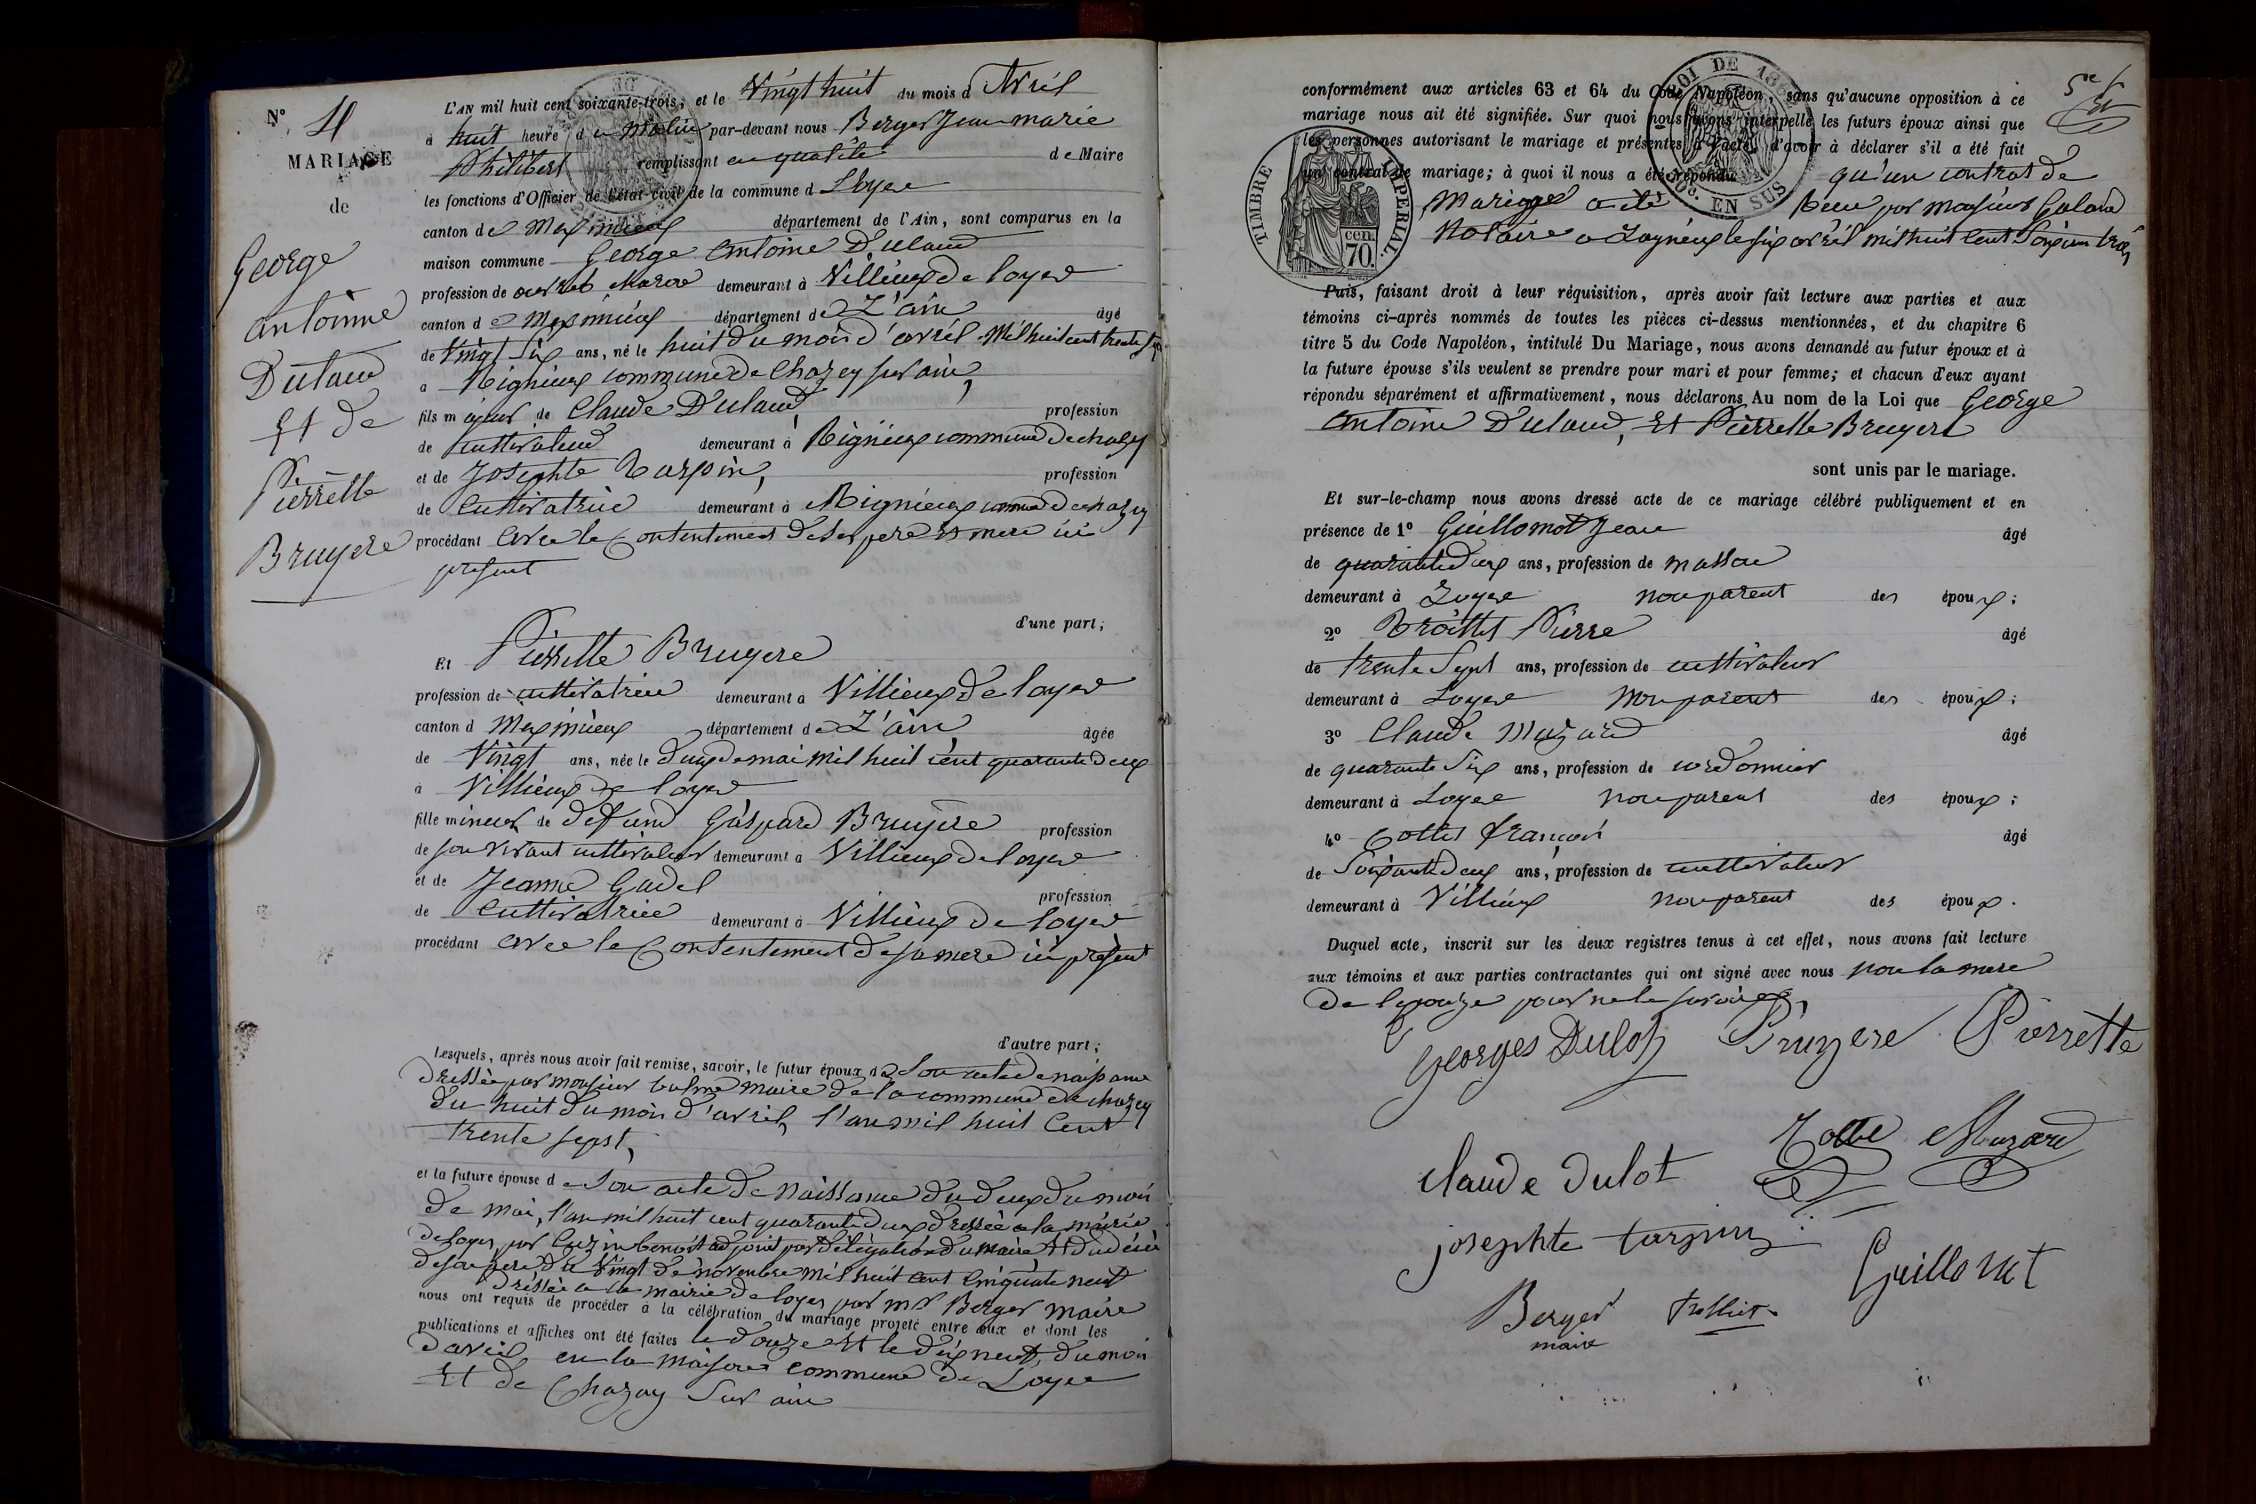 N° 4
MARIAGE
de
George
antoinne
Dulaud
Et de
Pierrette
Bruyere
L'AN mil huit cent soixante-trois, et le Vingt huit du mois d Avril
à huit heure du Matin par-devant nous Berger Jean marie
Philibert remplissant en qualité de Maire
les fonctions d'Officier de l'état-civil de la commune d Loyes
canton de Meximieux département de l'Ain, sont comparus en la
maison commune George antoine Dulaud
profession de demeurant à Villieux de loyes
canton de Meximieux département de L'ain âgé
de Vingt Six ans, né le huit du mois d'avril Mil huit cent trente sept
a Rignieux commune de Chazey sur ain,
fils majeur de Claude Dulaud profession
de cultivateur demeurant à Rignieux commune de chazey
et de Josephte Turpin, profession
de Cultivatrice demeurant à Rignieux commune de chazey
procédant avec le Contentement de ses pere et mere ici
present
d'une part;
Et Pierrette Bruyere
profession de cultivatrice demeurant à Villieux de loyes
canton d Meximieux département de L'ain âgée
de Vingt ans, née le Deux de mai mil huit cent quarante deux
à Villieux de loyes
fille mineur de defund Gaspard Bruyere profession
de son vivant cultivateur demeurant à Villieux de loyes
et de Jeanne Gadel profession
de Cultivatrice demeurant à Villieux de loyes
procédant avec le Contentement de sa mere ici present
d'autre part;
Lesquels, après nous avoir fait remise, savoir, le futur époux de Son acte de naissance
Dressée par monsieur maire de la commune de chazey
du huit du mois d'avril, l'an mil huit Cent
trente sept,
et la future épouse de Son acte de Naissance du deux du mois
de mai, l'an mil huit cent quarante deux dressée a la mairie
de loyes par benoit adjoint par délégation du maire Et du décès
de son pere du Vingt de novembre mil huit cent Cinquante neuf
Dréssée a la mairie de loyes par mr Berger maire
nous ont requis de procéder à la célébration du mariage projeté entre eux et dont les
publications et affiches ont été faites le douze Et le dix neuf, du mois
d'avril en la maison commune de Loyes
Et de Chazay Sur ain
5e
conformément aux articles 63 et 64 du Code Napoléon, sans qu'aucune opposition à ce
mariage nous ait été signifiée. Sur quoi nous avons interpellé les futurs époux ainsi que
les personnes autorisant le mariage et présentes à l'acte, d'avoir à déclarer s'il a été fait
un contrat de mariage; à quoi il nous a été répondu qu'un contrat de
Mariage a été Recu par monsieur Galand
Notaire a Lagnieux le six avril mil huit Cent Soixan trois,
TIMBRE IMPERIAL
cen. 70.
LOI DE 1862
10c. EN SUS
Puis, faisant droit à leur réquisition, après avoir fait lecture aux parties et aux
témoins ci-après nommés de toutes les pièces ci-dessus mentionnées, et du chapitre 6
titre 5 du Code Napoléon, intitulé Du Mariage, nous avons demandé au futur époux et à
la future épouse s'ils veulent se prendre pour mari et pour femme; et chacun d'eux ayant
répondu séparément et affirmativement, nous déclarons Au nom de la Loi que George
antoine Dulaud, Et Pierrette Bruyere
sont unis par le mariage.
Et sur-le-champ nous avons dressé acte de ce mariage célébré publiquement et en
présence de 1° Guillomot Jean âgé
de quarante deux ans, profession de masson
demeurant à Loyes non parent des époux;
2° Trolliet Pierre âgé
de trente Sept ans, profession de cultivateur
demeurant à Loyes non parent des époux;
3° Claude Mazard âgé
de quarante Six ans, profession de cordonnier
demeurant à Loyes non parent des époux;
4° Cottet françois âgé
de Soixante deux ans, profession de cultivateur
demeurant à Villieux non parent des époux.
Duquel acte, inscrit sur les deux registres tenus à cet effet, nous avons fait lecture
aux témoins et aux parties contractantes qui ont signé avec nous non la mere
de l'epouze pour ne le savoir,
Georges Dulot Bruyere Pierrette
Claude Dulot Mazard
josephte turpin Guillomot
Berger trolliet
maire